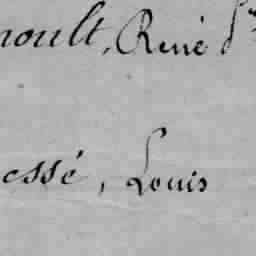 noult, René
essé, Louis